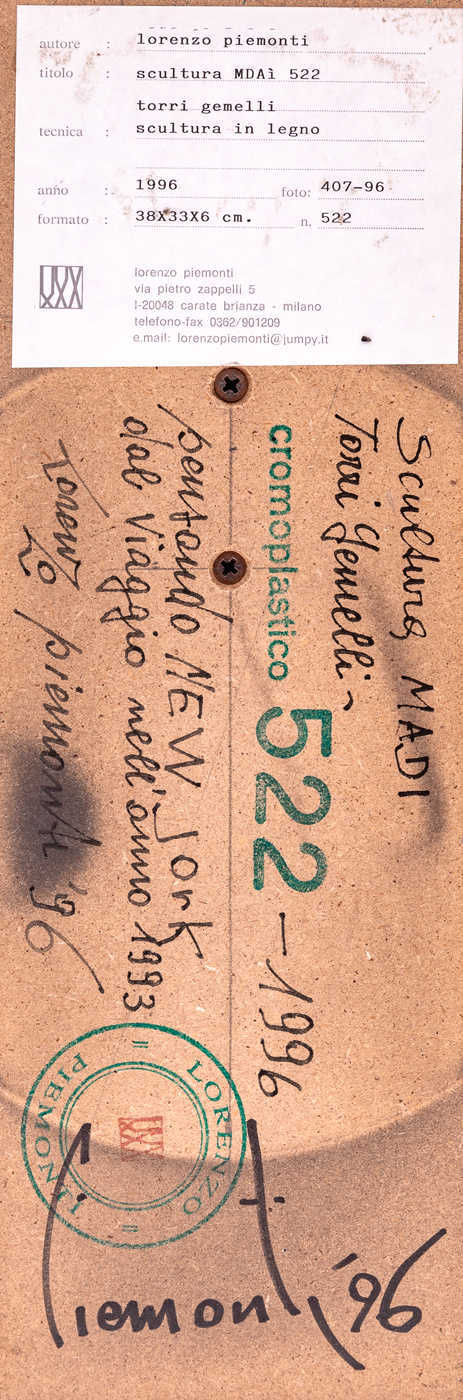 autore : lorenzo piemonti
titolo : scultura MDAì 522
torri gemelli
tecnica : scultura in legno
anno : 1996 foto: 407-96
formato : 38X33X6 cm. n. 522
lorenzo piemonti
via pietro zappelli 5
I-20048 carate brianza - milano
telefono-fax 0362/901209
e.mail: lorenzopiemonti@jumpy.it
Scultura MADI
Torri Gemelli -
cromoplastico 522 - 1996
pensando NEW Jork
dal Viaggio nell'anno 1993
Lorenzo piemonti '96
LORENZO = PIEMONTI =
Piemonti '96